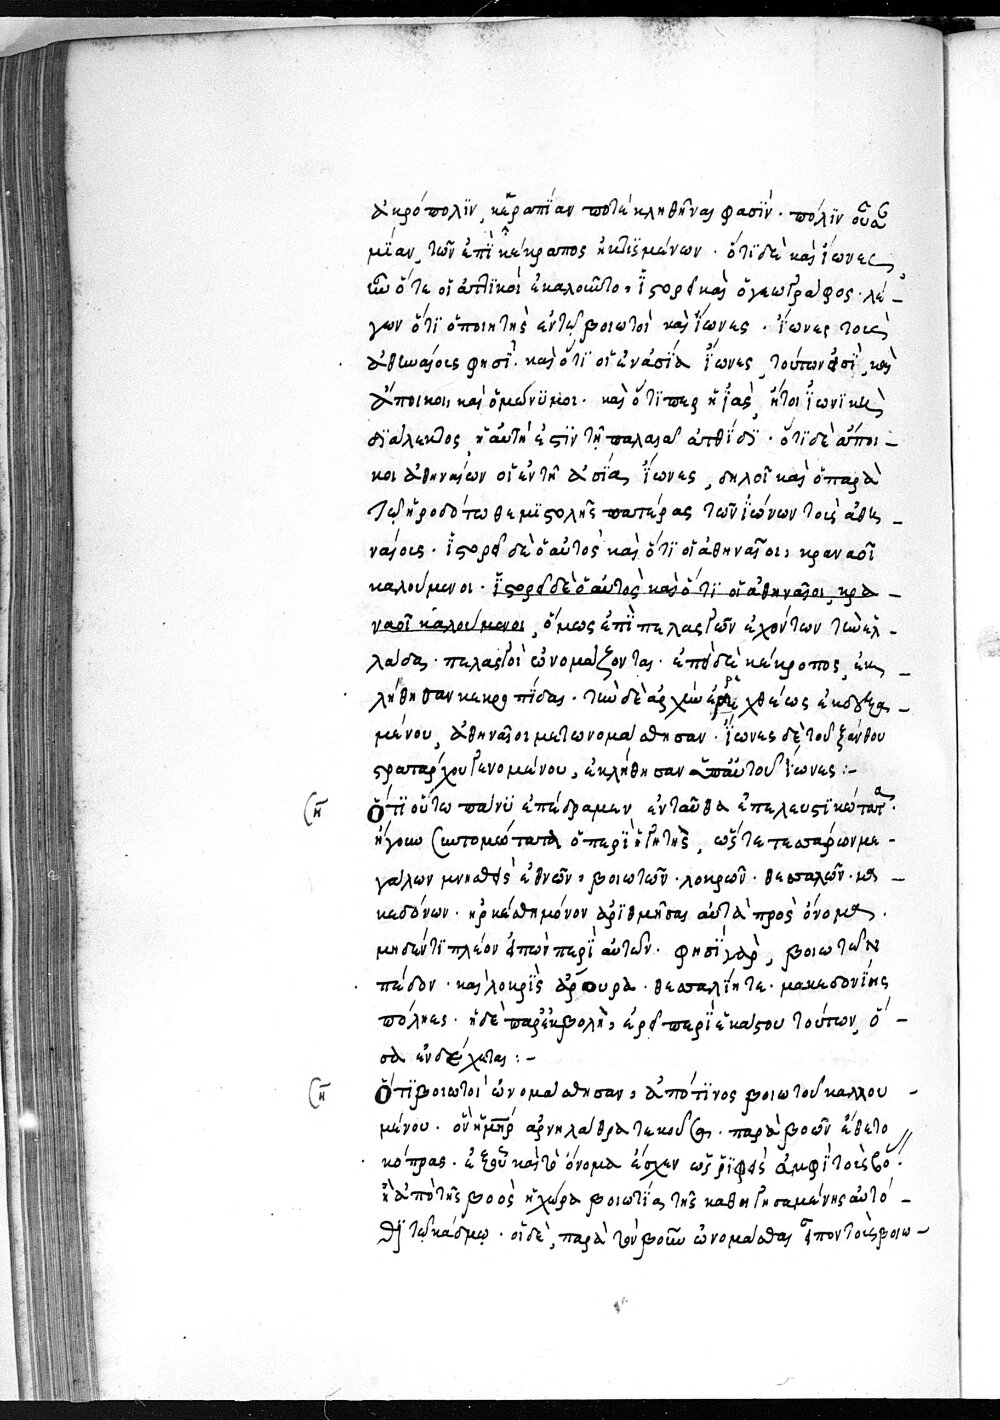 ἀκρόπολιν, κεκραπίαν ποτὲ κληθῆναι φασίν· πόλιν οὖσαν
μίαν, τῶν ἐπὶ κέκραπος ἐκτισμένων· ὅτι δὲ καὶ ἴωνες
ὅτε οἱ ἀττικοὶ ἐκαλοῦντο, ἱστορεῖ καὶ ὁ γεωγράφος· λέ-
γων ὅτι ὁ ποιητὴς ἐν τῷ βοιωτοὶ καὶ ἴωνες· ἴωνες τοὺς
ἀθηναίους φησί· καὶ ὅτι οἱ ἐν ἀσίᾳ ἴωνες, τούτων εἰσὶ, καὶ
ἄποικοι καὶ ὁμώνυμοι· καὶ ὅτι περ ἡ ἰὰς, ἤτοι ἰωνικὴ
διάλεκτος, ἡ αὐτή ἐστιν τῇ παλαιᾷ ἀτθίδι· ὅτι δὲ ἄποι-
κοι ἀθηναίων οἱ ἐν τῇ ἀσίᾳ ἴωνες, δηλοῖ καὶ ὁ παρὰ
τῷ ἡροδότω θεμιστοκλῆς πατέρας τῶν ἰώνων τοὺς ἀθη-
ναίους· ἱστορεῖ δὲ ὁ αὐτὸς καὶ ὅτι οἱ ἀθηναῖοι, κραναοὶ
καλούμενοι· ἱστορεῖ δὲ ὁ αὐτὸς καὶ ὅτι οἱ ἀθηναῖοι, κρα-
ναοὶ καλούμενοι, ὅμως ἐπὶ πελασγῶν ἐχόντων τὴν ἑλ-
λάδα· πελασγοὶ ὠνομάζοντας· ἐπὶ δὲ κέκροπος, ἐκ-
λήθησαν κεκροπίδαι· τὴν δὲ ἀρχὴν ἐρεχθέως ἐκδεξα-
μένου, ἀθηναῖοι μετωνομάσθησαν· ἴωνες δὲ τοῦ ξάνθου
στρατάρχου γενομένου, ἐκλήθησαν ἀπ' αὐτοῦ ἴωνες:-
ση
Ὅτι οὕτω πάνυ ἐπέδραμεν ἐνταῦθα
ὁ περιηγητὴς, ὥστε τεσσάρων με-
γάλων μνησθεὶς ἐθνῶν, βοιωτῶν· λοκρῶν· θεσσαλῶν· μα-
κεδόνων· ἠρκέσθη μόνον ἀριθμῆσαι αὐτὰ πρὸς ὄνομα·
μηδέν τι πλέον εἰπὼν περὶ αὐτῶν· φησὶ γὰρ, βοιωτῶν
πέδον· καὶ λοκρὶς ἄρουρα· θεσσαλίη τε· μακεδονίης
πόληες· ἡ δὲ παρεκβολὴ, ἐρεῖ περὶ ἑκάστου τούτων, ὅ-
σα ἐνδέχεται:-
ση
Ὅτι βοιωτοὶ ὠνομάσθησαν, ἀπό τινος βοιωτοῦ καλλου
μένου· ὃν ἡ μὴρ ἄρνη λάθρα τεκοῦσα· παρὰ βοῶν ἔθετο
κόπρας· ἐξ οὗ καὶ τὸ ὄνομα ἔσχεν ὡς ῥιφεὶς ἀμφὶ τοὺς βό-
ἢ ἀπὸ τῆς βοὸς ἡ χώρα βοιωτία, τῆς καθηγησαμένης αὐτό-
θι τῷ κάδμῳ· οἱ δὲ, παρὰ τὴν βοῦν ὠνομάσθαι εἶπον τοὺς βοιω-